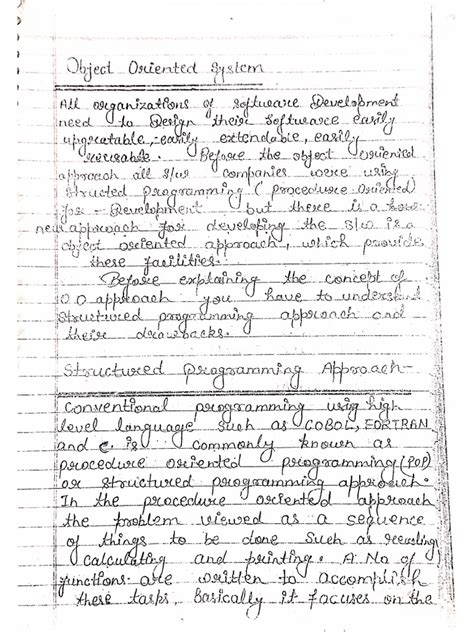 Object Oriented System
All organizations of software Development
need to Design their software easily
upgratable, easily extendable, easily
reuseable. Before the object oriented
approach all s/w companies were using
structed programming (procedure oriented)
for - Development but there is a
new approach for developing the s/w is a
object oriented approach, which provide
these facilities.
Before explaining the concept of
O O approach you have to understand
structured programming approach and
their drawbacks.
Structured programming Approach-
Conventional programming using high
level language such as COBOL, FORTRAN
and C is commonly known as
procedure oriented programming (POP)
or structured programming approach.
In the procedure oriented approach
the problem viewed as a sequence
of things to be done such as
calculating and printing. A No of
functions are written to accomplish
these tasks. Basically it focuses on the